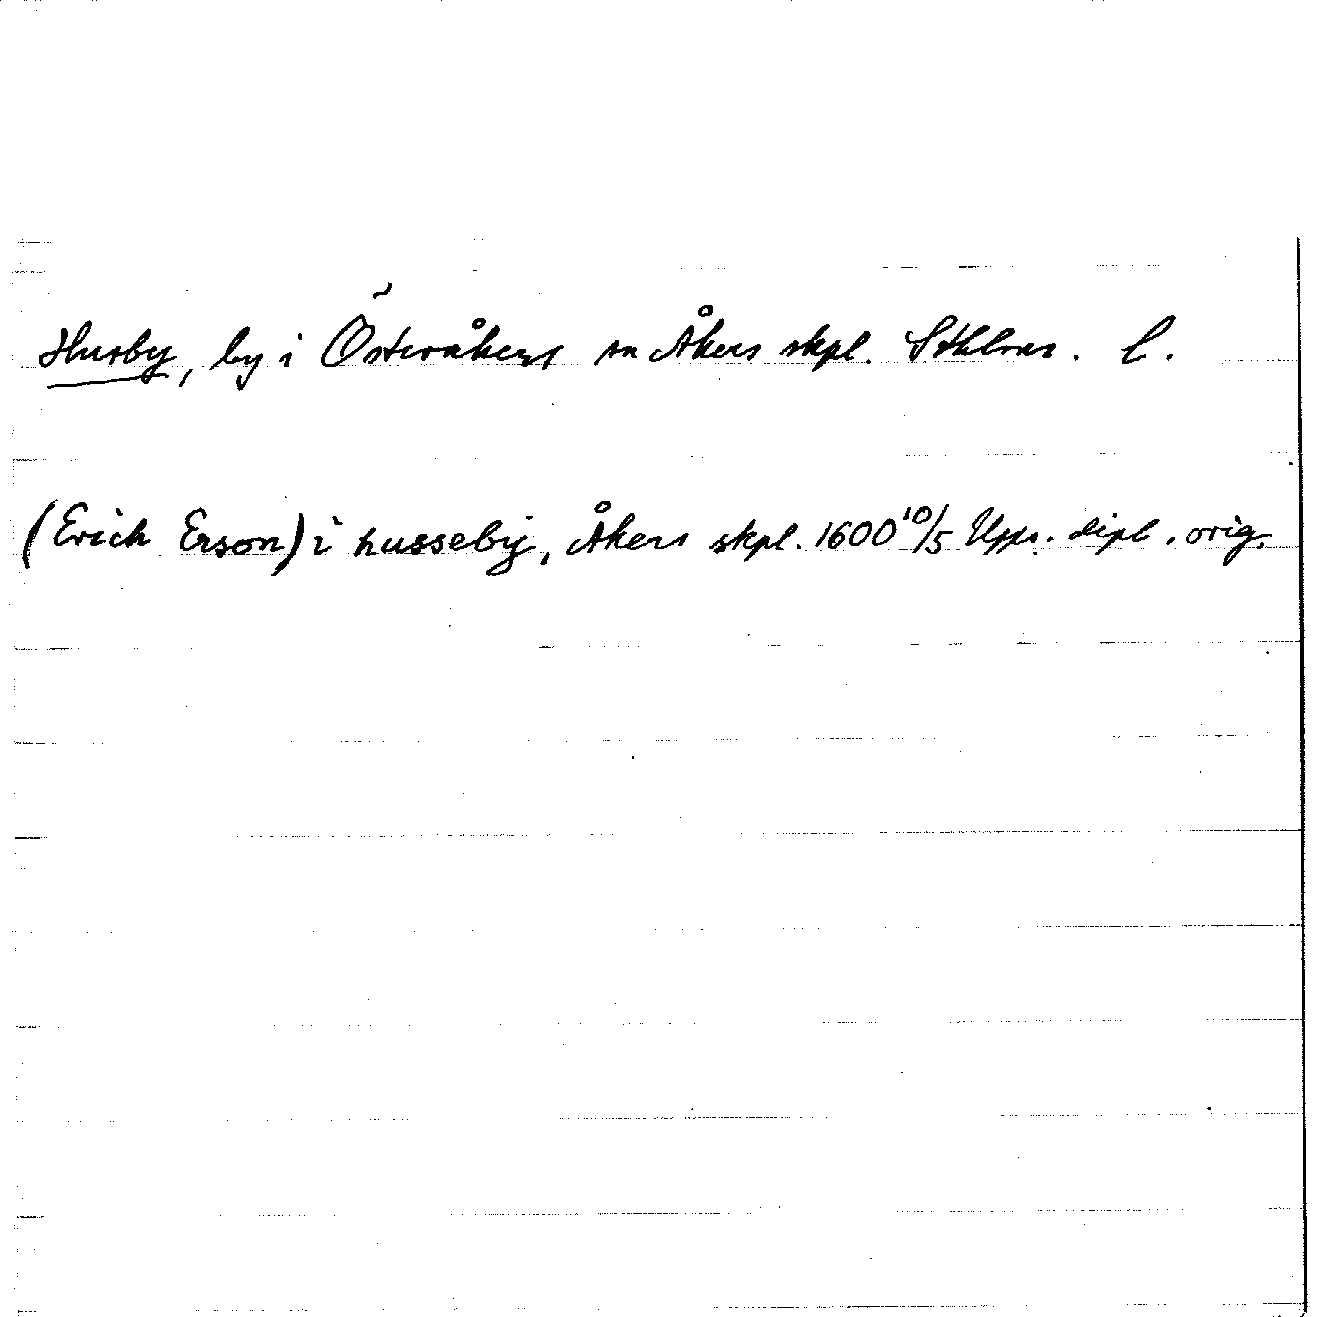 Husby, by i Österåkers sn Åkers skpl. Sthlms. l.
(Erich Erson) i husseby, Åkers skpl. 1600 10/5 Upps. dipl. orig.